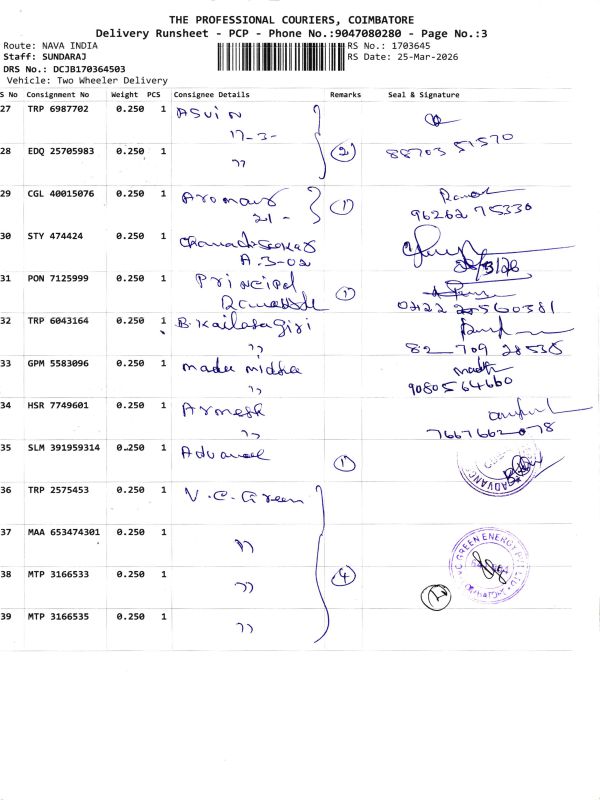 THE PROFESSIONAL COURIERS, COIMBATORE
Delivery Runsheet - PCP - Phone No.:9047080280 - Page No.:3
Route: NAVA INDIA RS No.: 1703645
Staff: SUNDARAJ RS Date: 25-Mar-2026
DRS No.: DCJB170364503
Vehicle: Two Wheeler Delivery
S No Consignment No Weight PCS Consignee Details Remarks Seal & Signature
27 TRP 6987702 0.250 1 Asvin
17-3-
28 EDQ 25705983 0.250 1 ,, 2 88703 51570
29 CGL 40015076 0.250 1 1
21 - 96262 75330
30 STY 474424 0.250 1
A.3-02
31 PON 7125999 0.250 1 Principal 1
0422 560381
32 TRP 6043164 0.250 1 B.Kailasagiri
,, 82 709 28538
33 GPM 5583096 0.250 1 madu midha
,, 9080564660
34 HSR 7749601 0.250 1
,, 7667662078
35 SLM 391959314 0.250 1 1
ADVANC
36 TRP 2575453 0.250 1 V.C.Green
37 MAA 653474301 0.250 1 ,,
VC GREEN ENERGY PVT LTD
38 MTP 3166533 0.250 1 ,, 4
39 MTP 3166535 0.250 1 ,,